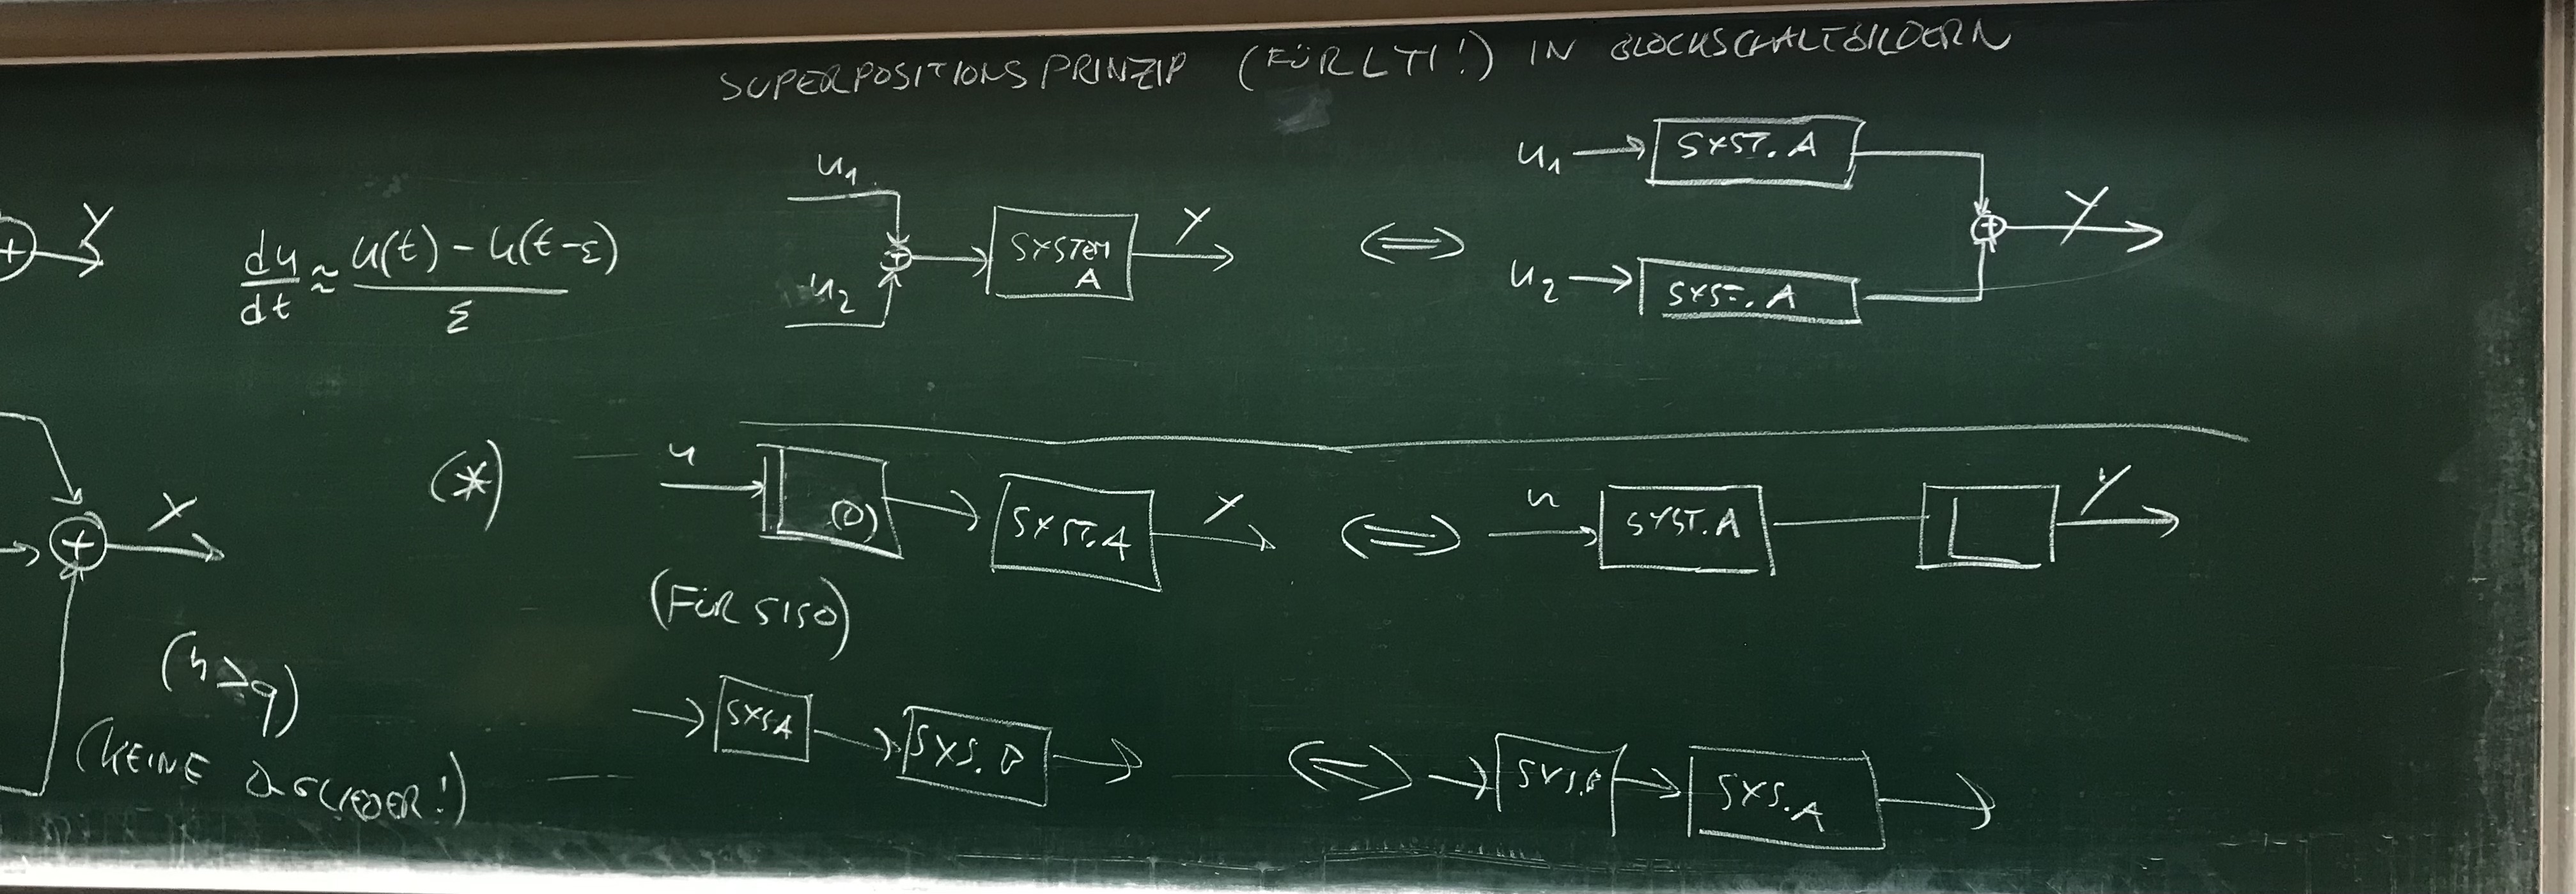 SUPERPOSITIONSPRINZIP (FÜR LTI!) IN BLOCKSCHALTBILDERN
u₁
u₂
SYSTEM
A
y
⟺
u₁ → SYST. A
u₂ → SYST. A
+
y
y
+
du/dt ≈ (u(t) - u(t-ε))/ε
(*)
u
(0)
SYST. A
y
⟺
u
SYST. A
y
(FÜR SISO)
+
y
(n ≥ q)
(KEINE D-GLIEDER!)
→ SYS A → SYS. B →
⟺
→ SYS. B → SYS. A →